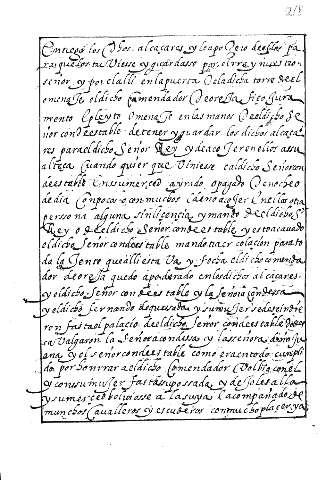 218
Entrego los dhos. alcaçares y leapodero dellos pa
ra que los tuviesse y guardasse por el rrey nuestro
señor y por el alli en la puerta de la dicha torre de el
omenaje el dicho comendador de oreſſa fiço jura
mento e pleyto omenaje en las manos de el dicho se
ñor condestable de tener y guardar los dichos alcaça
res para el dicho señor Rey y de acojer en ellos a su
alteza cuando quier que viniese e al dicho señor con
destable en su merced ayrado o pagado de noche o
de dia con pocos o con muchos e a no acojer en ellos otra
persona alguna sin licencia y mando de el dicho S.
Rey o de el dicho señor condestable y esto acavado
el dicho señor condestable mando traer colacion para to
da la jente que alli esta va y fecha el dicho comenda
dor de oreſſa quedo apoderado en los dichos alcaçares
y el dicho señor condestable y la señora condessa
y el dicho fernando de quesada y su mujer se descindie
ron fasta el palacio de el dicho señor condestable don
cavalgaron la señora condessa y la señora doña ju
ana y el señor condestable como era en todo cumpli
do por honrrar a el dicho comendador volbio con el
y con su mujer fasta su possada y dejoles alla
y su merced bolviosse a la suya acompañado de
munchos cavalleros y escuderos con mucho plaçer, ya